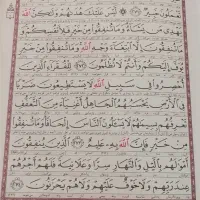 تَعْمَلُونَ خَبِيرٌ ﴿٢٧١﴾ ۞ لَّيْسَ عَلَيْكَ هُدَىٰهُمْ وَلَٰكِنَّ ٱللَّهَ
يَهْدِى مَن يَشَآءُ وَمَا تُنفِقُوا۟ مِنْ خَيْرٍ فَلِأَنفُسِكُمْ وَمَا
تُنفِقُونَ إِلَّا ٱبْتِغَآءَ وَجْهِ ٱللَّهِ وَمَا تُنفِقُوا۟ مِنْ خَيْرٍ
يُوَفَّ إِلَيْكُمْ وَأَنتُمْ لَا تُظْلَمُونَ ﴿٢٧٢﴾ لِلْفُقَرَآءِ ٱلَّذِينَ
أُحْصِرُوا۟ فِى سَبِيلِ ٱللَّهِ لَا يَسْتَطِيعُونَ ضَرْبًا
فِى ٱلْأَرْضِ يَحْسَبُهُمُ ٱلْجَاهِلُ أَغْنِيَآءَ مِنَ ٱلتَّعَفُّفِ
تَعْرِفُهُم بِسِيمَٰهُمْ لَا يَسْـَٔلُونَ ٱلنَّاسَ إِلْحَافًا وَمَا تُنفِقُوا۟
مِنْ خَيْرٍ فَإِنَّ ٱللَّهَ بِهِۦ عَلِيمٌ ﴿٢٧٣﴾ ٱلَّذِينَ يُنفِقُونَ
أَمْوَٰلَهُم بِٱلَّيْلِ وَٱلنَّهَارِ سِرًّا وَعَلَانِيَةً فَلَهُمْ أَجْرُهُمْ
عِندَ رَبِّهِمْ وَلَا خَوْفٌ عَلَيْهِمْ وَلَا هُمْ يَحْزَنُونَ ﴿٢٧٤﴾